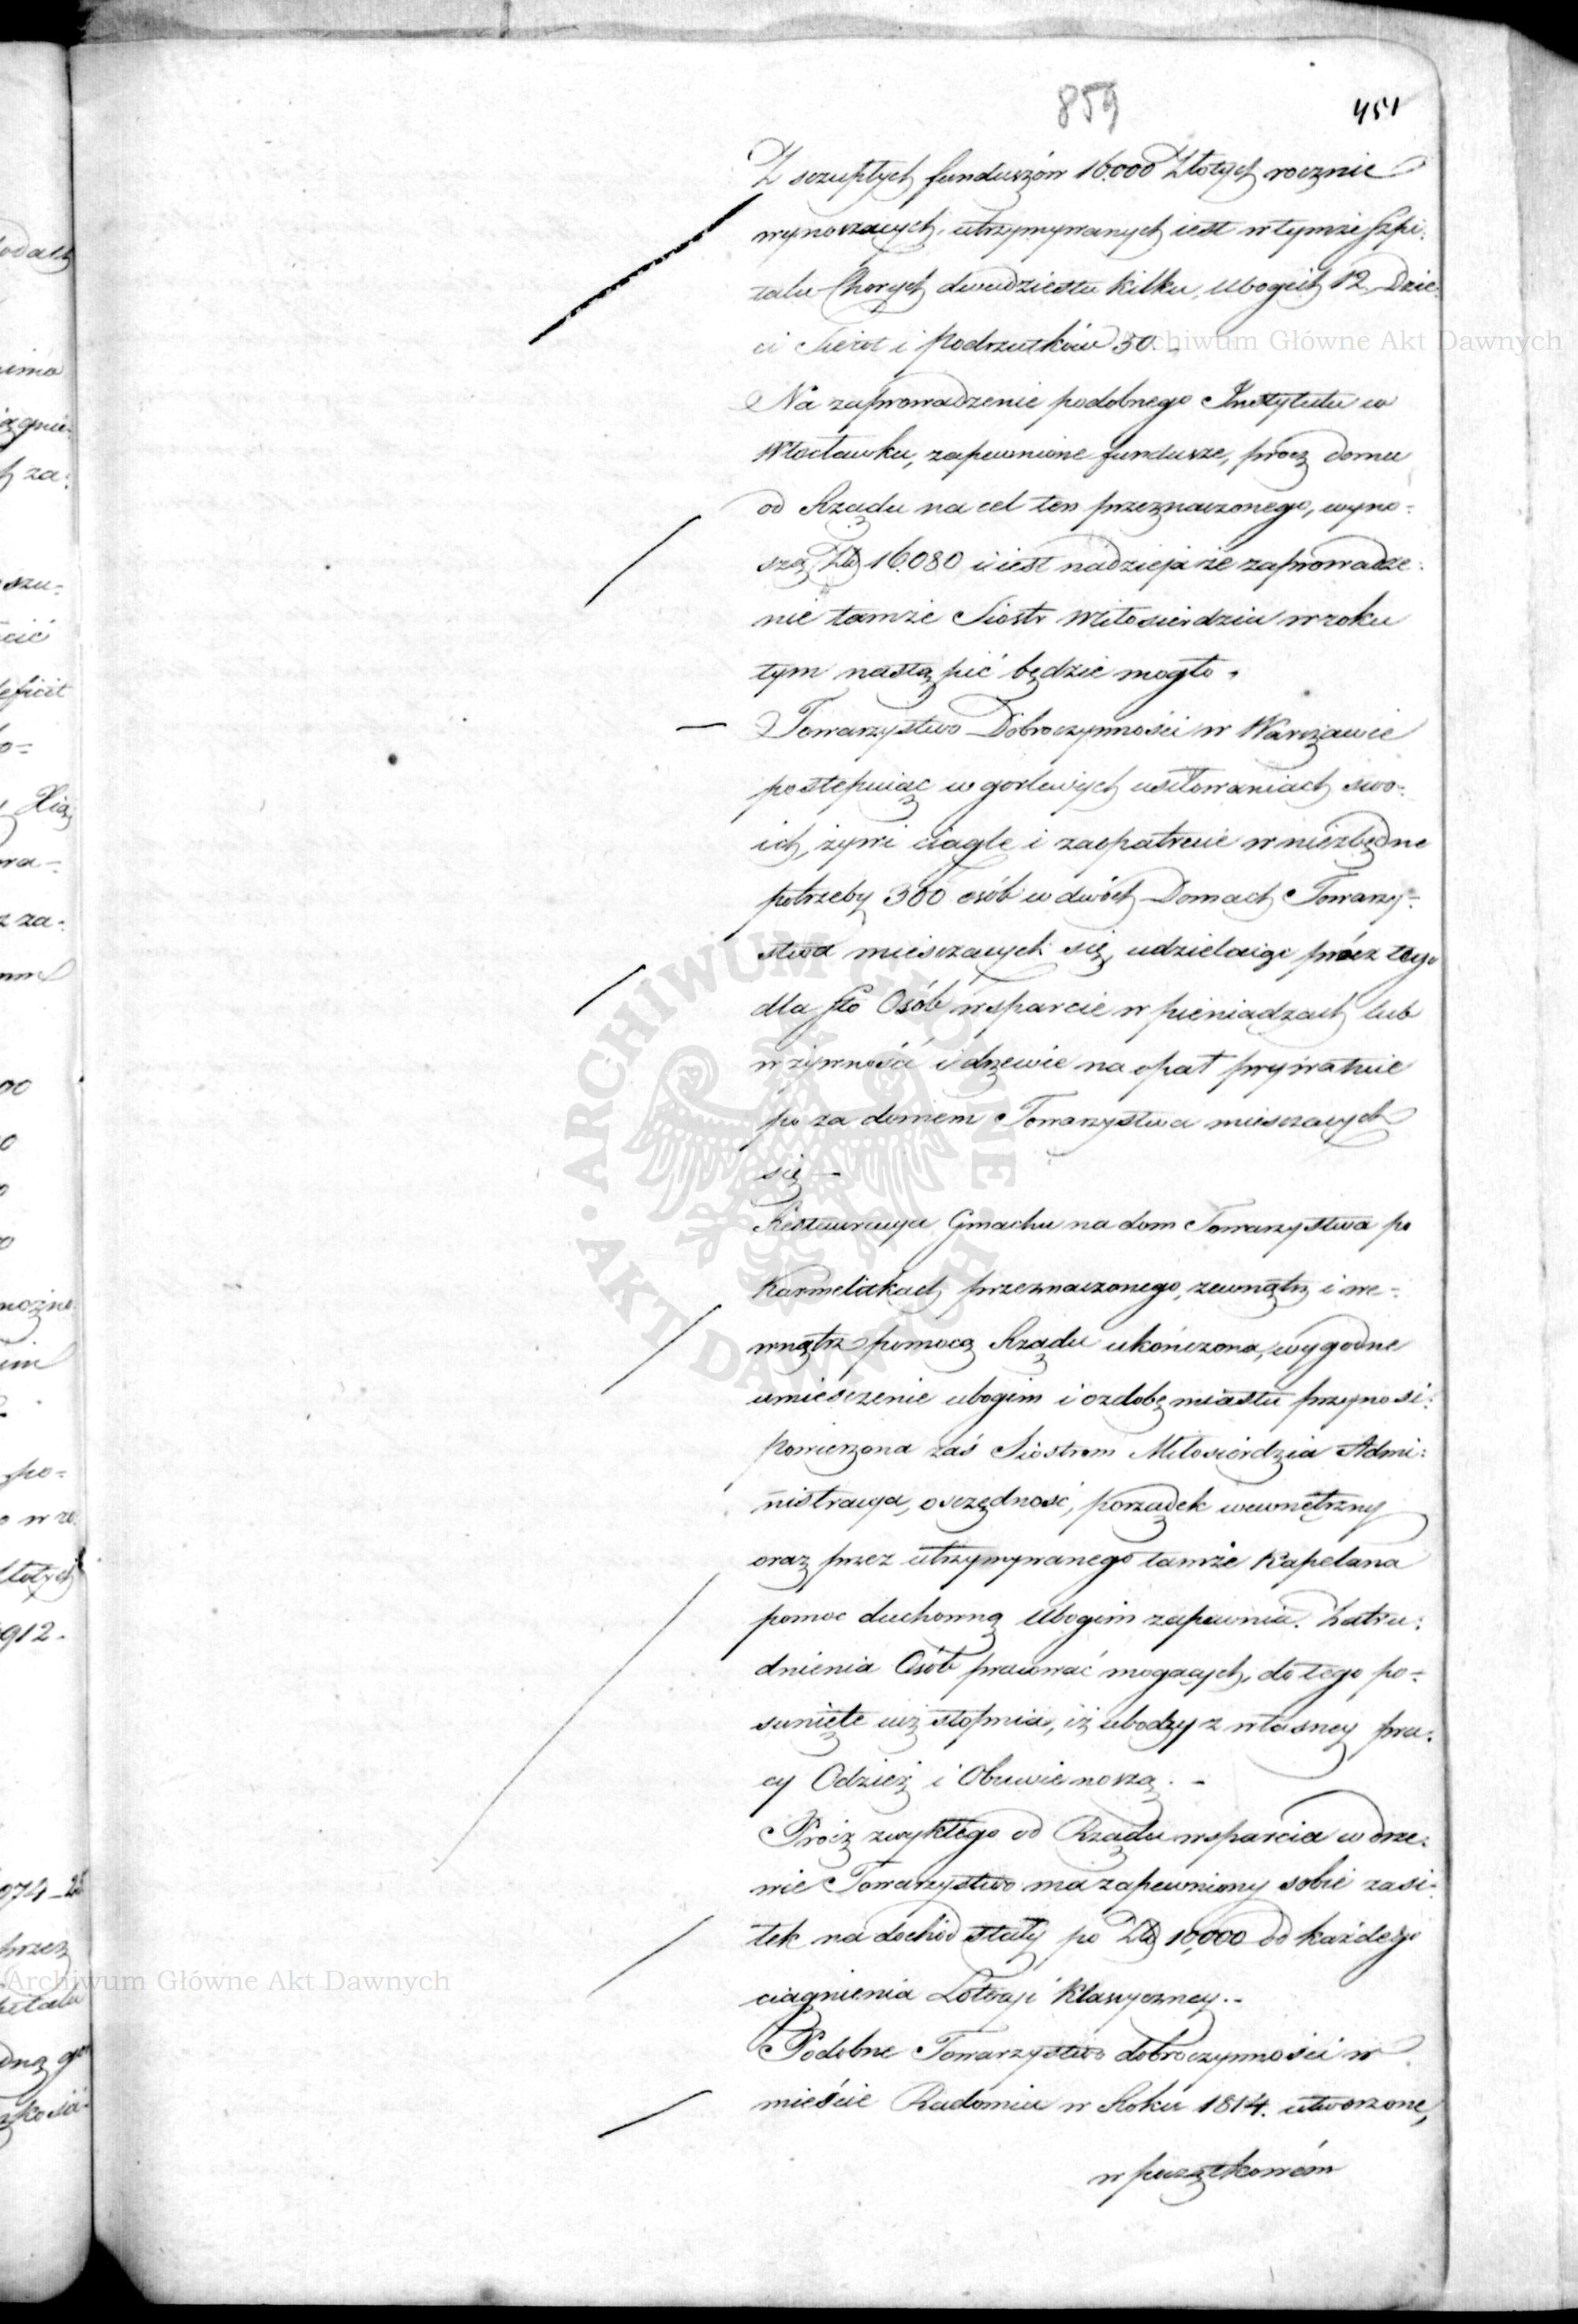 859
451
Z szczupłych funduszów 16.000 Złotych rocznie
wynoszących, utrzymywanych iest w tymże Szpi:
talu Chorych dwudziestu kilku, Ubogich 12, Dzie:
ci Sierot i Podrzutków 30. -
Na zaprowadzenie podobnego Instytutu w
Włocławku, zapewnione fundusze, prócz domu
od Rządu na cel ten przeznaczonego, wyno-
szą Złt 16.080 i iest nadzieja że zaprowadze:
nie tamże Siostr Miłosierdzia w roku
tym nastąpić będzie mogło.
— Towarzystwo Dobroczynności w Warszawie
postępuiąc w gorliwych usiłowaniach swo-
ich, żywi ciągle i zaopatruie w niezbędne
potrzeby 300 osób w dwóch Domach Towarzy-
stwa miesczących się, udzielaiąc prócz tego
dla Osób wsparcie w pieniądzach lub
w żywności i drzewie na opał prywatnie
po za domem Towarzystwa miesczących
się —
Restauracya Gmachu na dom Towarzystwa po
Karmelitkach przeznaczonego, zewnątrz i we-
wnątrz pomocą Rządu ukończona, wygodne
umiesczenie ubogim i ozdobę miastu przynosi:
Powierzona zaś Siostrom Miłosierdzia Admi:
nistracya, osczędność, porządek wewnętrzny
oraz przez utrzymywanego tamże Kapelana
pomoc duchowną Ubogim zapewnia. Zatru:
dnienia Osób pracować mogących, do tego po-
sunięte iuż stopnia, iż ubodzy z własney pra:
cy Odzież i Obuwie noszą. -
Prócz zwykłego od Rządu wsparcia w drze:
wie Towarzystwo ma zapewniony sobie zasi-
łek na dochód stały po Złt 10,000 od każdego
ciągnienia Loteryi Klassyczney. -
Podobne Towarzystwo dobroczynności w
mieście Radomiu w Roku 1814. utworzone,
w początkowém
Archiwum Główne Akt Dawnych
ARCHIWUM GŁÓWNE
AKT DAWNYCH
Archiwum Główne Akt Dawnych